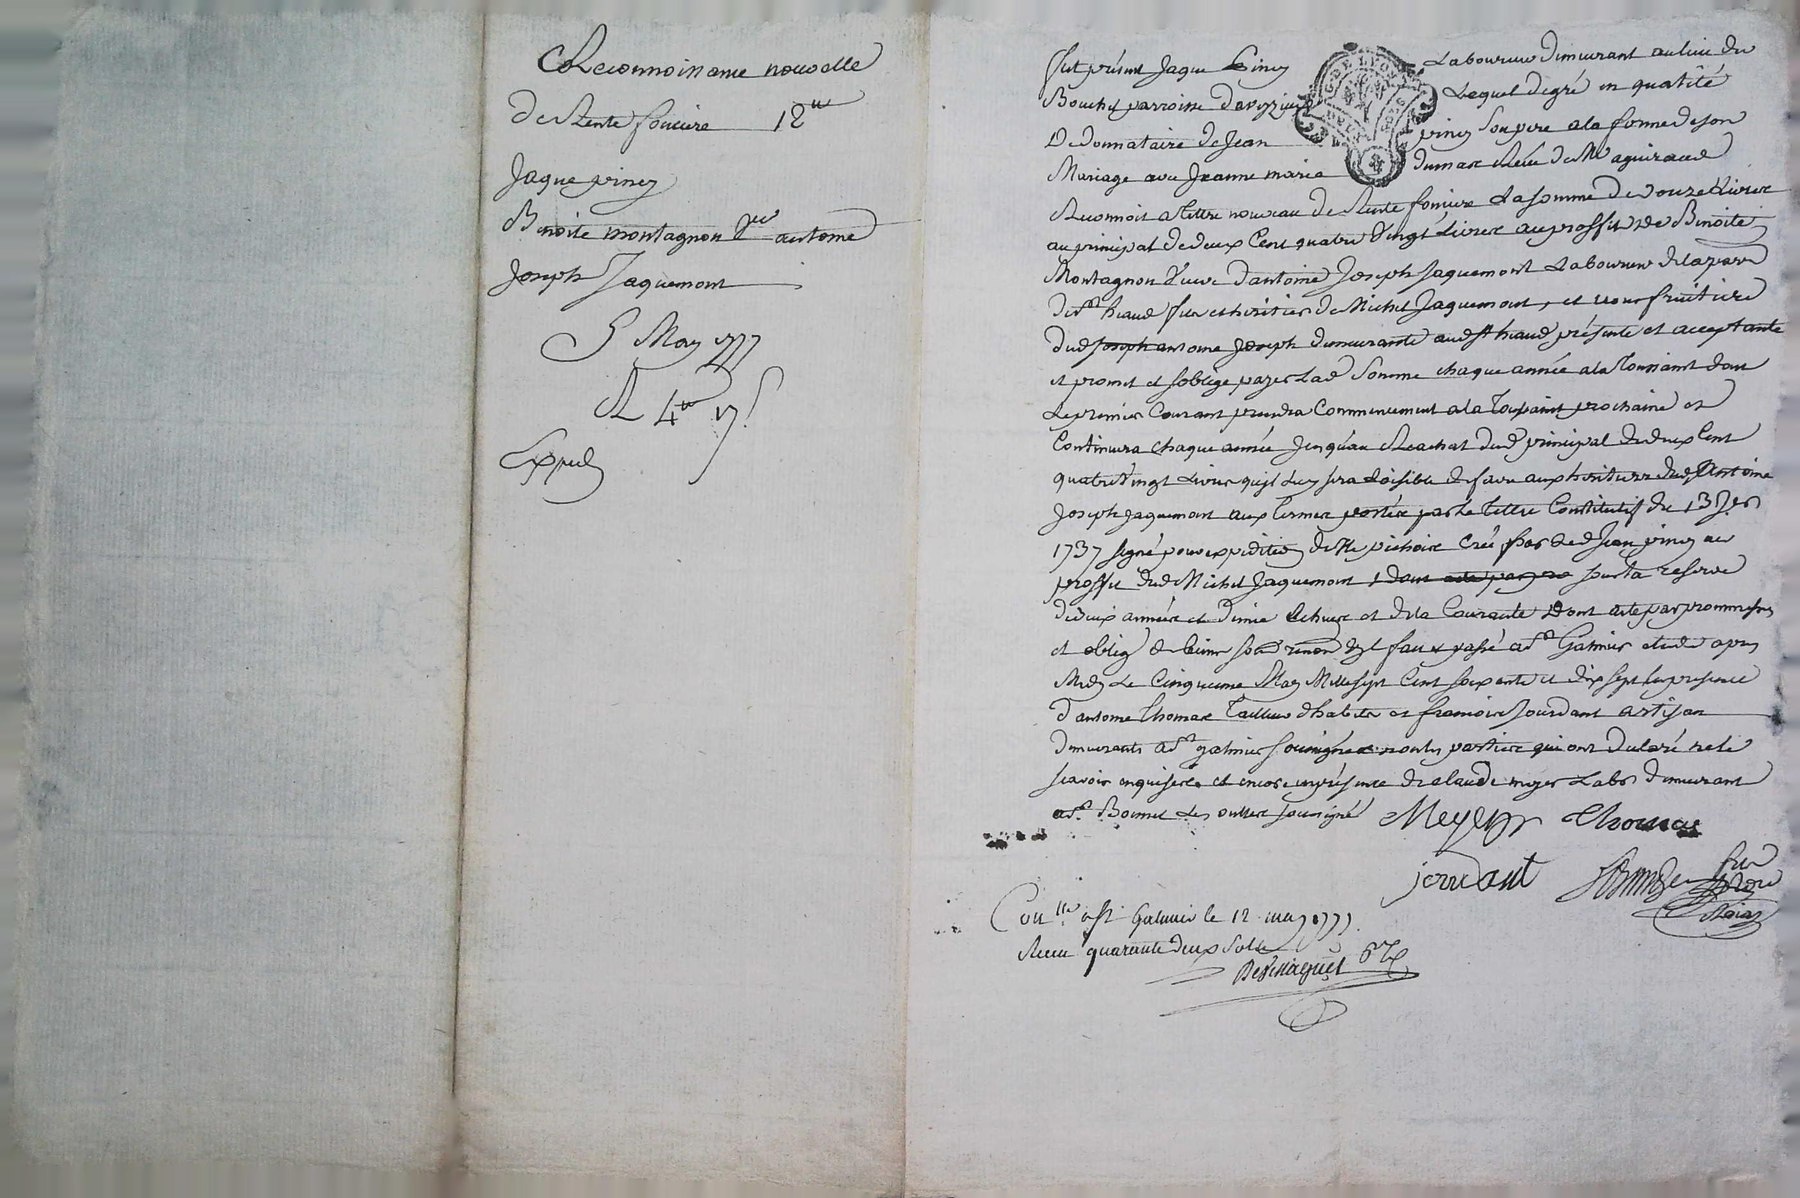 Reconnoissance nouvelle
de Rente fonciere 12ᵗᵗ
Jaque piney
Benoite montagnon vᵉᵘ antoine
Joseph Jaquemont
5 May 1777
R 4ᵗᵗ 17ˢ
Expedᵉ
G. DE LYON
DEUX SOLS
fut présent Jaque Piney Laboureur demeurant au lieu du
Bouchet parroisse daveizieu Lequel de gré en qualité
De donnataire de Jean piney son pere a la forme de son
Mariage avec Jeanne marie dumas Receu de Mᵉ aguiraud
Reconnoit a tittre nouveau de Rente fonciere La somme de douze Livres
au principal de deux Cent quatre Vingt Livres au proffit de Benoite
Montagnon Veuve dantoine Joseph Jaquemont Laboureur de la parr
de Sᵗ heand fils et héritier de Michel Jaquemont, et usufruitiere
dud Joseph antoine Joseph demeurante aud St heand présente et acceptante
et promet et soblige payer Lad Somme chaque année a la Toussaint dont
Le premier Courant prendra Commencement a la Toussaint prochaine et
Continuera chaque année Jusqu'au Reachat dud principal de deux Cent
quatre Vingt Livres qu'il Luy sera Loisible de faire aux heritiers dud Antoine
Joseph Jaquemont aux termes portés par Le tittre Constitutif du 13
1737 signé pour expedition de Mᵉ pichoire Créé par led Jean piney au
proffit dud Michel Jaquemont, dont acte par eux sous la reserve
de deux années et demie Echues et de la Courante Dont acte par prommesses
et oblig de biens soum renon et fait et passé a Sᵗ Galmier etude apres
Midy Le Cinquieme May Mille sept Cent soixante et dix sept En presence
d'antoine Thomas Tailleur d'habits et francois Jourdant artisan
demeurants a Sᵗ galmier soussignés non les parties qui ont declaré ne le
scavoir enquises et encore en présence de claude meyer Labʳ demeurant
a Sᵗ Bonnet Les outtes soussigné Meyer Thomas
jourdant
Conᵗˡᵉ a Sᵗ Galmier le 12 may 1777
Receu quarante deux Sols